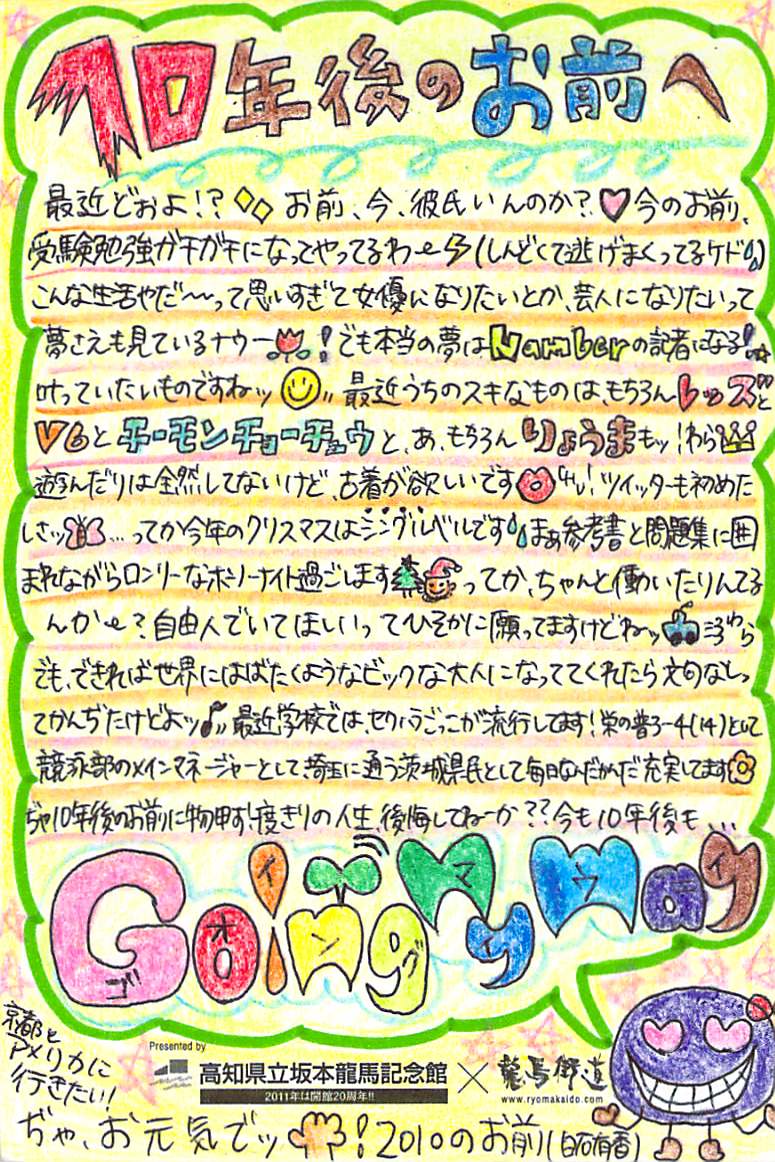 10年後のお前へ
最近どおよ!? お前、今、彼氏いんのか? 今のお前、
受験勉強ガチガチになってやってるわ〜(しんどくて逃げまくってるケド)
こんな生活やだ〜って思いすぎて女優になりたいとか、芸人になりたいって
夢さえも見ているナウー!でも本当の夢はNumberの記者になる!
叶っていたいものですねッ 最近うちのスキなものは、もちろんレッズと
V6とチーモンチョーチュウと、あ、もちろんりょうまもッ!わら
遊んだりは全然してないけど、古着が欲しいです !ツイッターも初めた
しさッ…ってか今年のクリスマスはシングルベルです まぁ参考書と問題集に囲
まれながらロンリーなホーリーナイト過ごします ってか、ちゃんと働いたりんてる
んか〜?自由人でいてほしいってひそかに願ってますけどねッ わら
でも、できれば世界にはばたくようなビックな大人になっててくれたら文句なしっ
てかんぢだけどよッ 最近学校では、セクハラごっこが流行してます!栄の普3-4(14)として
競泳部のメインマネージャーとして、埼玉に通う茨城県民として毎日なんだかんだ充実してます
ぢゃ10年後のお前に物申す!一度きりの人生、後悔してねーか??今も10年後も、、、
Going My Way
ゴ オ イ ン グ マ イ ウ エ イ
京都と
アメリカに
行きたい!
Presented by
高知県立坂本龍馬記念館 × 龍馬街道
2011年は開館20周年!!
www.ryomakaido.com
ぢゃ、お元気でッ !2010のお前(白石有香)